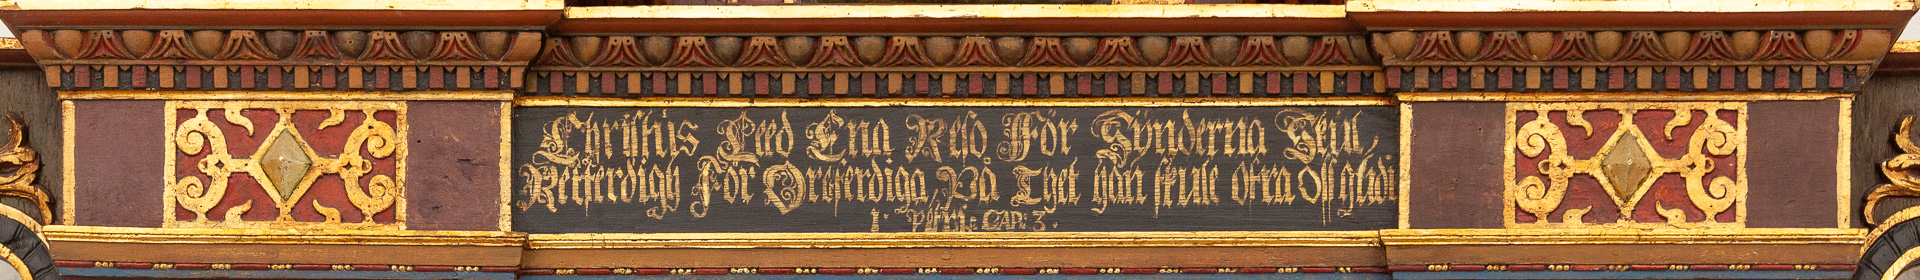 Christus Leed Ena Reso För Synderna Skul,
Rettferdigh För Orettferdiga, På Thet han skule ofra Oss gudi
1. Petri: CAP: 3.